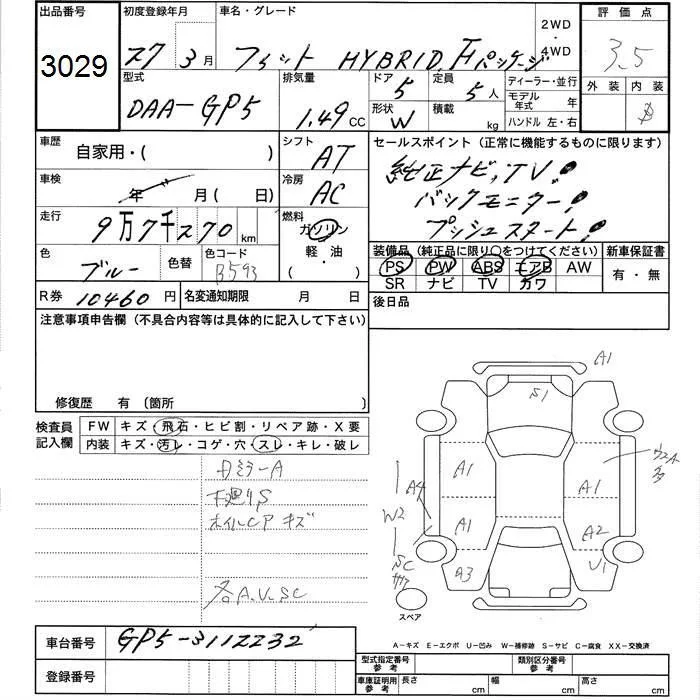 出品番号 初度登録年月 車名・グレード 2WD・4WD 評価点
3029 27年3月 フィット HYBRID Fパッケージ 3.5
外装 内装 B
型式 排気量 ドア 定員 ディーラー・並行
DAA-GP5 1.49CC 5 5人 モデル年式 年
形状 W 積載 kg ハンドル 左・右
車歴 自家用・( ) シフト AT セールスポイント(正常に機能するものに限ります)
純正ナビ,TV!
車検 年 月(日) 冷房 AC バックモニター!
走行 9万7千270km 燃料 ガソリン・軽・油・( ) プッシュスタート!
装備品(純正品に限り〇をつけてください) 新車保証書
色 ブルー 色替 色コード B593 PS PW ABS エアB AW 有・無
SR ナビ TV カワ
R券 10460円 名変通知期限 月 日 後日品
注意事項申告欄(不具合内容等は具体的に記入して下さい)
修復歴 有〔箇所 〕
検査員記入欄 FW キズ・飛石・ヒビ割・リペア跡・X要
内装 キズ・汚レ・コゲ・穴・スレ・キレ・破レ
ミラーA
下廻りS
ホイルCPキズ
各A.U.SC
A1
S1
A1
A1
A4
W2
A1
A2
SC
A3
U1
スペア
車台番号 GP5-3112232
登録番号
A-キズ E-エクボ U-凹み W-補修跡 S-サビ C-腐食 XX-交換済
型式指定番号参考 類別区分番号参考
車庫証明用参考 長さ cm 幅 cm 高さ cm